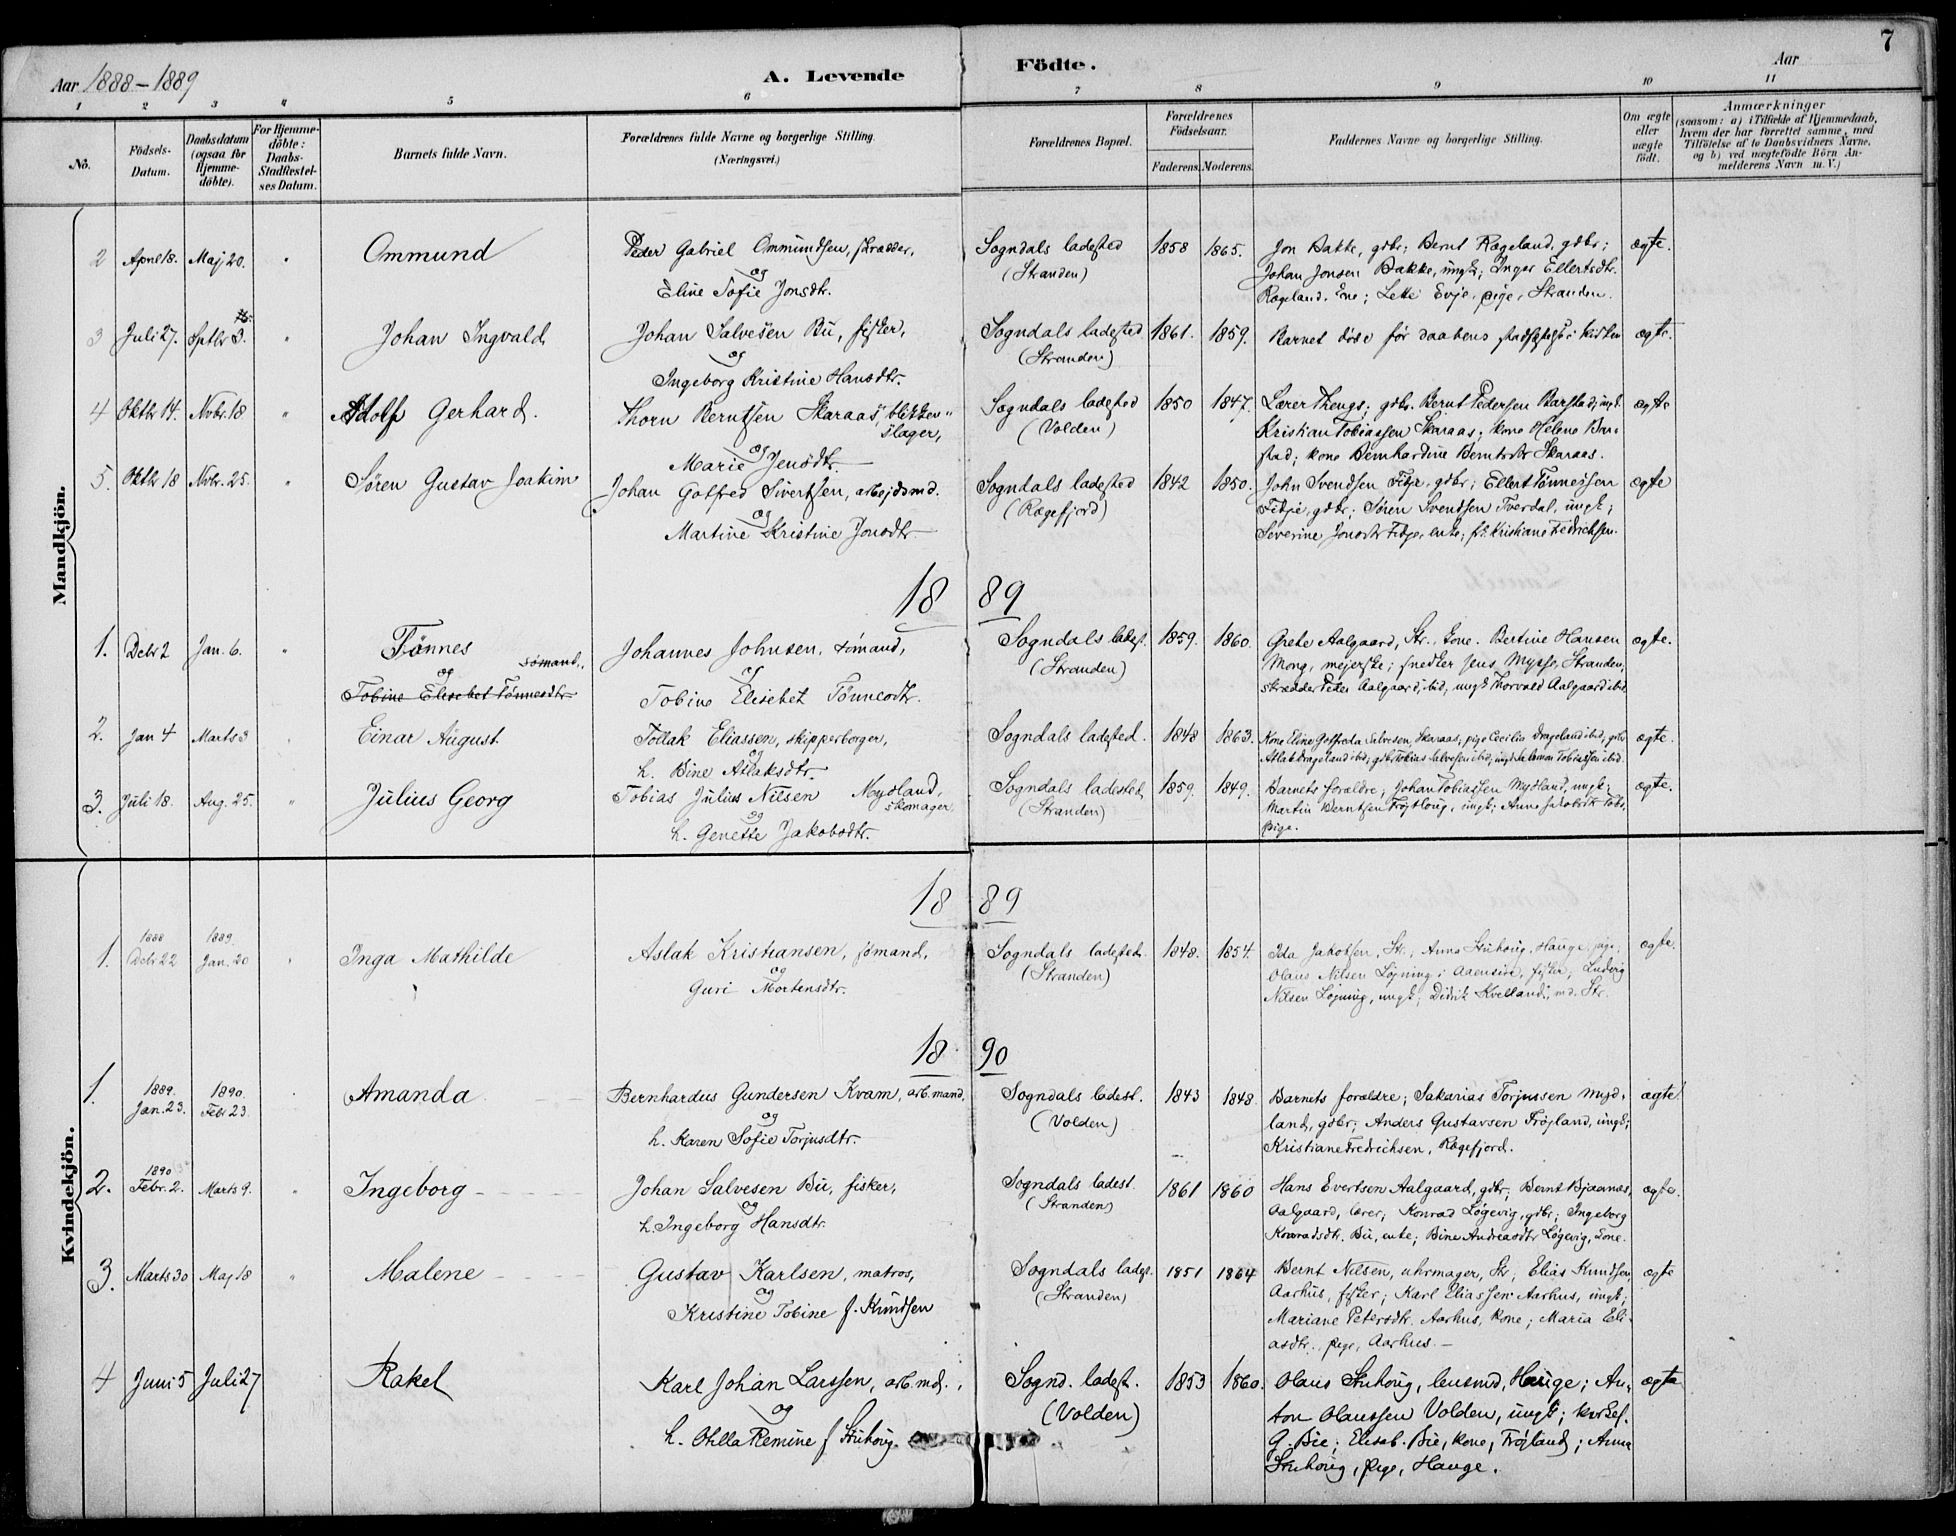 7
Aar 1888-1889
A. Levende
Födte.
Aar
1 2 3 " 5 6 7 8 9 10 11
No.
Födsels-Datum.
Daabsdatum (ogsaa for Hjemme-döbte).
For Hjemme-döbte: Daabs-Stadfæstel-ses Datum.
Barnets fulde Navn.
Forældrenes fulde Navne og borgerlige Stilling.
(Næringsvei.)
Forældrenes Bopæl.
Forældrenes Födselsaar.
Faderens. Moderens.
Faddernes Navne og borgerlige Stilling.
Om ægte eller uægte födt.
Anmærkninger
(saasom: a) i Tilfælde af Hjemmedaab,
hvem der har forrettet samme, med
Tilföielse af to Daabsvidners Navne,
og b) ved uægtefödte Börn An-
melderens Navn m. V.)
Mandkjön.
2 April 18. Maj 20. " Ommund Peder Gabriel Ommundsen, skrædder, Sogndals ladested 1858 1865. Jon Bakke, gdbr; Bernt Rægeland, gdbr; ægte.
og (Stranden) Johan Jonsen Bakke, ungk; Inger Ellertsdtr.
Eline Sofie Jonsdtr. Rægeland, Ene; Lette Evje, pige, Stranden.
3 Juli 27. Septbr 3. " Johan Ingvald Johan Salvesen Bu, fisker, Sogndals ladested 1861. 1859. Barnet døde før daabens stadfæstelse i kirken ægte.
og (Stranden)
Ingeborg Kristine Hansdtr.
4 Oktbr 14. Novbr. 18 " Adolf Gerhard. Thorn Berntsen Skaraas, blikken- Sogndals ladested 1850 1847. Lærer Thengs; gdbr. Bernt Pedersen Barstad, ungk. ægte
slager, (Volden) Kristian Tobiassen Skaraas; kone Helene Bar-
og stad; kone Bernhardine Berntsdtr Skaraas.
Marie Jensdtr.
5. Oktbr 18 Novbr. 25. " Søren Gustav Joakim Johan Gotfred Sivertsen, arbejdsmd. Sogndals ladested 1842 1850. John Svendsen Fitje, gdbr; Ellert Tønnessen ægte
og (Rægefjord) Fitje, gdbr; Søren Svendsen Tverdal, ungk;
Martine Kristine Jonsdtr Severine Jonsdtr Fitje, enke; fr. Kristiane Fredrichsen.
1889
1. Decbr 2 Jan. 6. " Tønnes Johannes Johnsen, sømand, Sogndals ladest. 1859. 1860. Grete Aalgaard, Str. Kone. Bertine Hansen ægte.
sømand,
og og (Stranden) Mong, mejerske; snedker Jens Mysse, Stranden,
Tobine Elisebet Tønnesdtr Tobine Elisebet Tønnesdtr. skrædder Peter Aalgaard, ibid, ungk Thorvald Aalgaard ibid
2. Jan 4 Marts 3 " Einar August Tollak Eliassen, skipperborger, Sogndals ladested. 1848 1863. Kone Eline Gotfreda Salvesen, Skaraas; pige Cecilia Drageland ibid; gdbr ægte.
og Atlak Drageland ibid; gdbr Tobias Salvesen ibid; ungk Salomon Tobiassen ibid.
h. Bine Atlaksdtr.
3. Juli 18. Aug. 25. " Julius Georg Tobias Julius Nilsen Mydland, Sogndals ladested. 1859. 1849. Barnets forældre; Johan Tobiassen Mydland, ungk; ægte.
skomager (Stranden) Martin Berntsen ungk; Anne Jakobsdtr
og pige.
h. Genette Jakobsdtr.
Kvindekjön.
1889
1. 1888 Decbr 22 1889 Jan. 20 " Inga Mathilde Aslak Kristiansen, sømand, Sogndals ladested. 1848. 1854. Ida Jakobsen, Str.; Anna Stuhoug, Hauge, pige; ægte.
og (Stranden) Olaus Nilsen Løjning i Aaensire, fisker; Ludvig
Guri Mortensdtr. Nilsen Løjning, ungk; Didrik Kvelland, md. Str.
1890
1. 1889. Jan. 23. 1890. Febr 23 Amanda Bernhardus Gundersen Kvam, arb. mand, Sogndals ladest. 1843 1848. Barnets forældre; Sakarias Torjussen Myd- ægte
og (Volden) land, gdbr; Anders Gustavsen Frøjland, ungk;
h. Karen Sofie Torjusdtr. Kristiane Fredrichsen, Rægefjord.
2. 1890 Febr. 2. Marts 9. " Ingeborg Johan Salvesen Bu, fisker, Sogndals ladest. 1861 1860 Hans Evertsen Aalgaard, gdbr; Bernt Bjaanæs, ægte.
og (Stranden) Aalgaard, lærer; Konrad Løgevig, gdbr; Ingeborg
h. Ingeborg Hansdtr. Konradsdtr. Bu, enke; Bine Andreasdtr Løgevig, Kone.
3. Marts 30 Maj 18 " Malene Gustav Karlsen, matros, Sogndals ladest. 1851 1864 Bernt Nilsen, uhrmager, Str; Elias Knudsen ægte
og (Stranden) Aarhus, fisker; Karl Eliassen Aarhus, ungk;
Kristine Tobine f. Knudsen Mariane Petersdtr. Aarhus, kone; Maria Eli-
asdtr., pige, Aarhus.
4 Juni 5 Juli 27 Rakel Karl Johan Larssen, arb. md., Sognd. ladest. 1853 1860. Olaus Stuhoug, lensmd, Hauge; An- ægte
og (Volden) ton Olaussen Volden, ungk; kirkes.
h. Ohlla Remine f Stuhoug. G. Bie; Elisab. Bie, kone, Frøjland; Anna
Stuhoug, pige, Hauge.